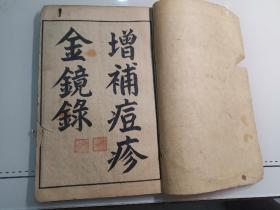 增補痘疹
金鏡錄